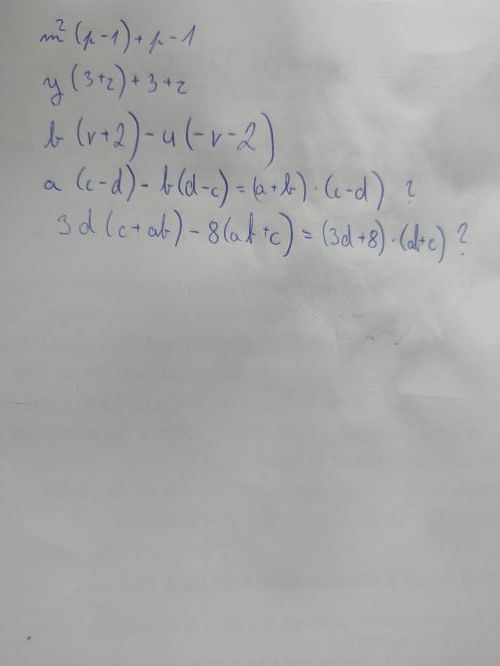 m²(p-1)+p-1
y(3+z)+3+z
b(v+2)-u(-v-2)
a(c-d)-b(d-c)=(a+b)·(c-d) ?
3d(c+ab)-8(ab+c)=(3d+8)·(d+c) ?